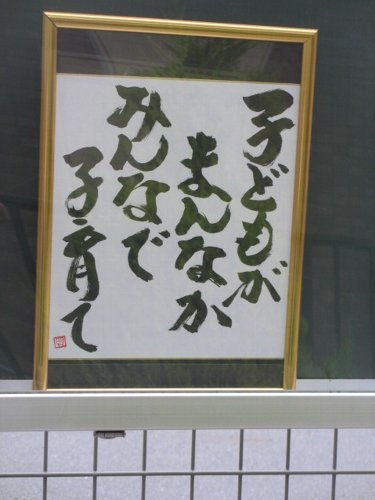 子どもが
まんなか
みんなで
子育て